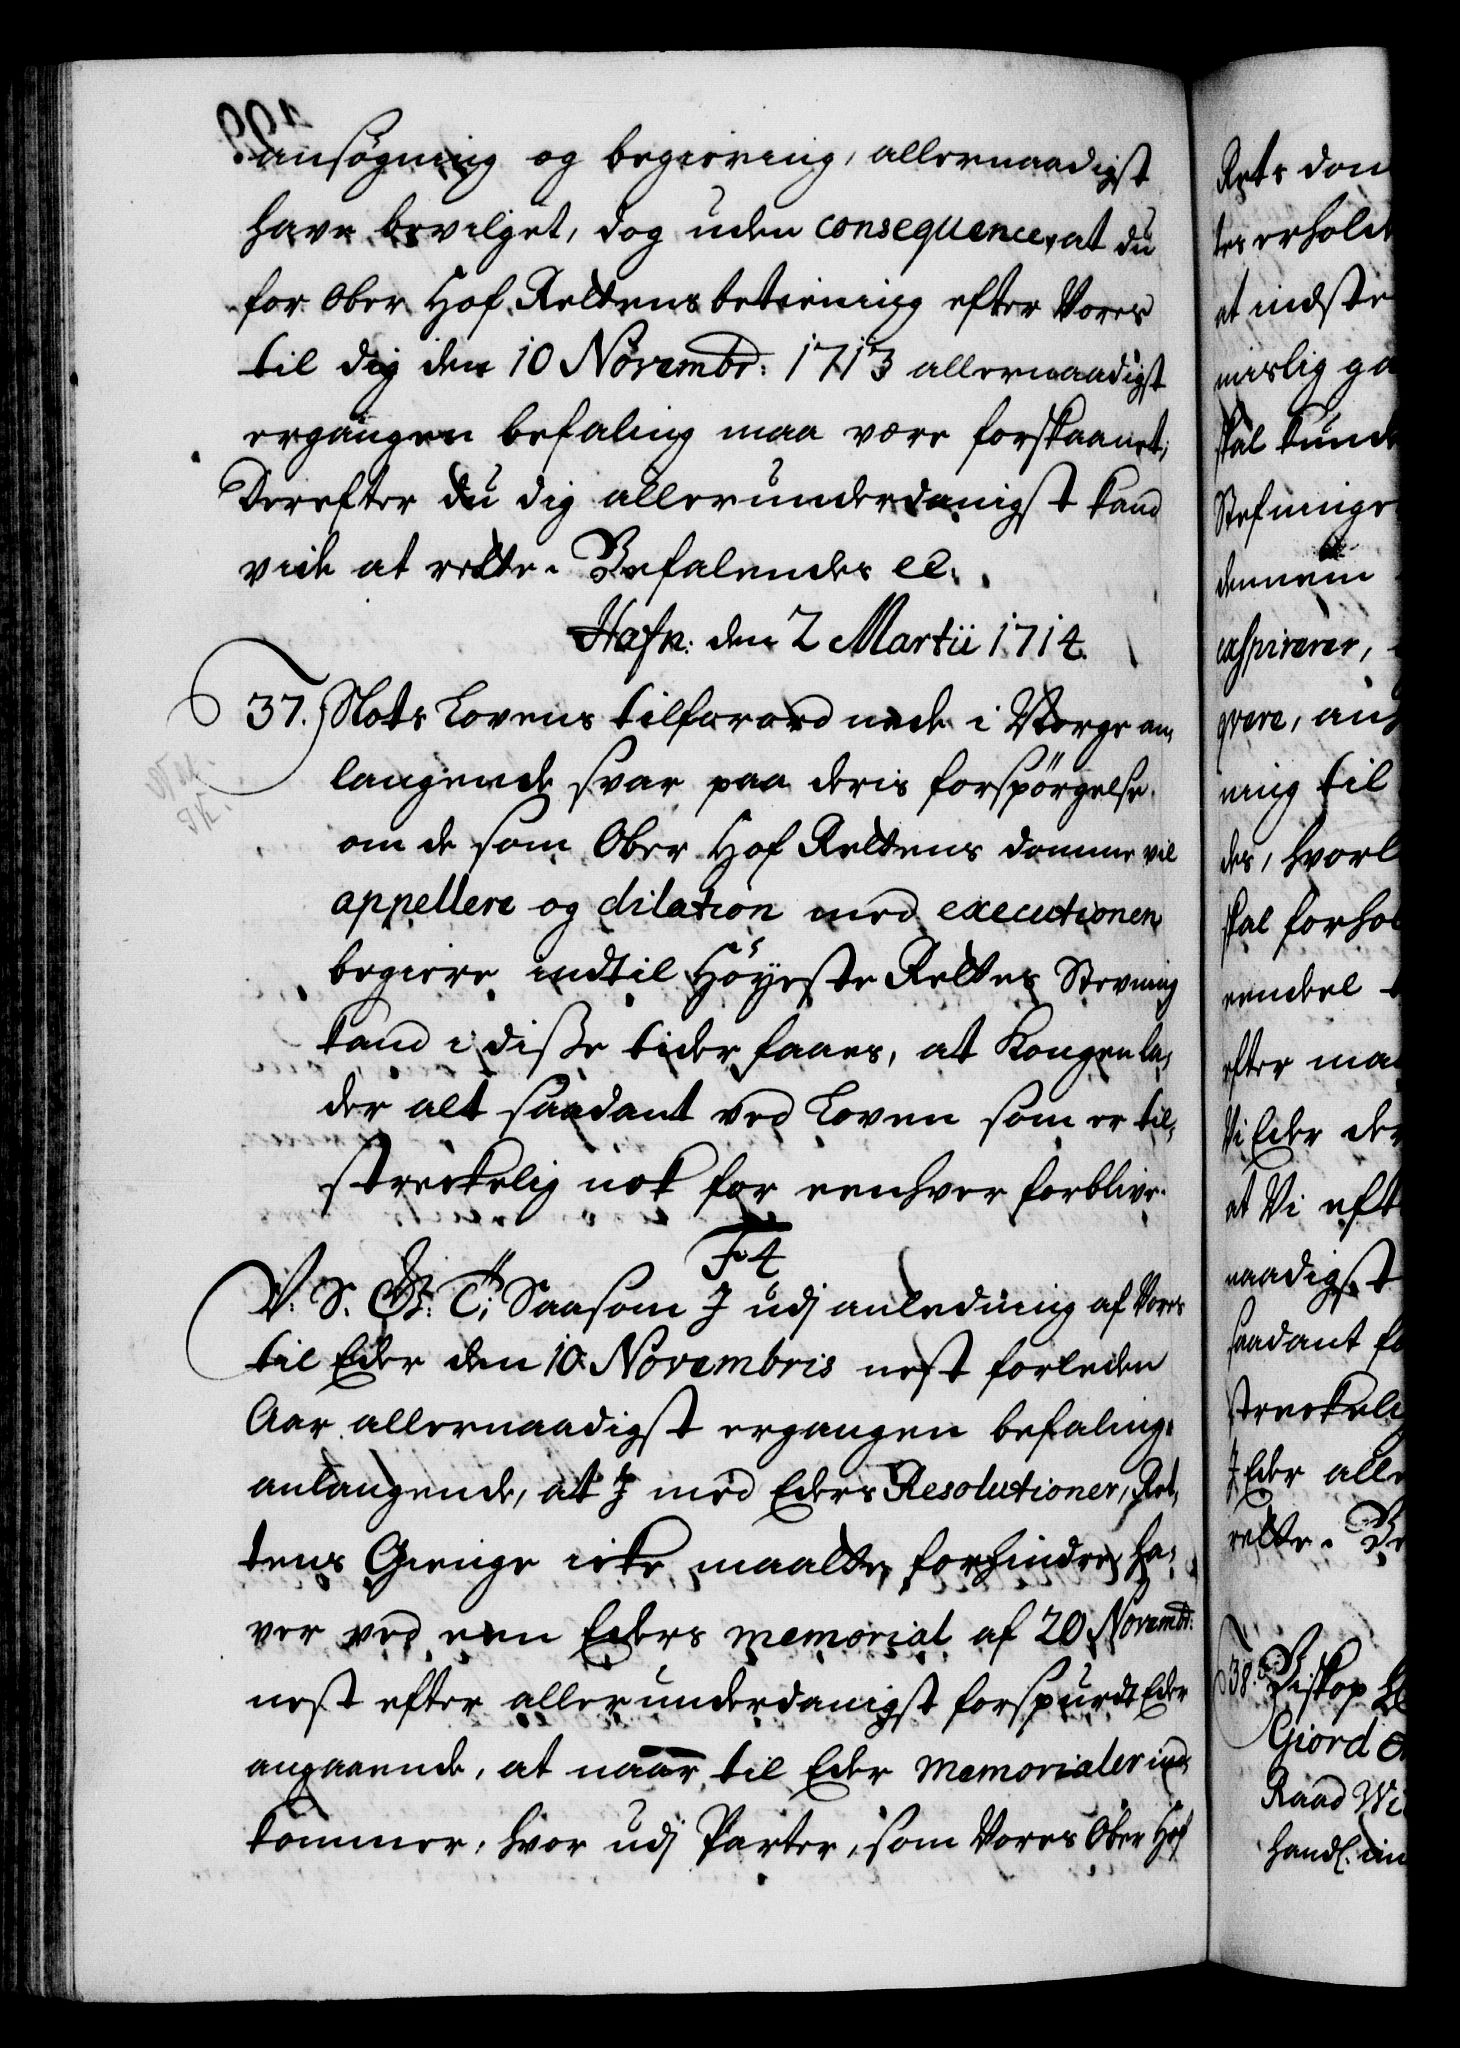 ansøgning og begiering, allernaadigst
have bevilget, dog uden consequence, at du
for Ober Hof Rettens betiening efter Vores
til dig den 10 Novembr: 1713 allernaadigst
ergangen befaling maa være forskaanet;
Derefter du dig allerunderdanigst kand
vide at rette. Befalendes etc.
Hafn: den 2 Martii 1714.
37. Slots Lovens tilforordnede i Norge an¬
langende svar paa deris forspørgelse
om de som Ober Hof Rettens domme vil
appellere og dilation med executionen
begiere indtil Høyeste Rettes Stevning
kand i disse tider faaes, at Kongen la¬
der alt saadant ved Loven som er til¬
streckelig nok for eenhver forblive.
F 4
V: S. G: T: Saasom I udj anledning af Vores
til Eder den 10. Novembris nest forleden
Aar allernaadigst ergangen befaling,
anlangende, at I med Eders Resolutioner, Ret¬
tens Gienge icke maatte forhindre, ha¬
ver ved een Eders memorial af 20 Novembr:
nest efter allerunderdanigst forspurdt Eder
angaaende, at naar til Eder memorialer ind¬
kommer, hvor udj Parter, som Vores Ober Hof
Rets dom
tes erhold
at indste
mislig ga
skal kunde
Stefninge
dennem
exspirerer,
qvere, an
ning til
des, hvorl
skal forhol
eendeel
efter ma
Vi Eder der
at Vi eft
naadigst
saadant fo
streckeli
I Eder alle
rette. Be
38. Biskop
Giord
Raad Wi
handl. in